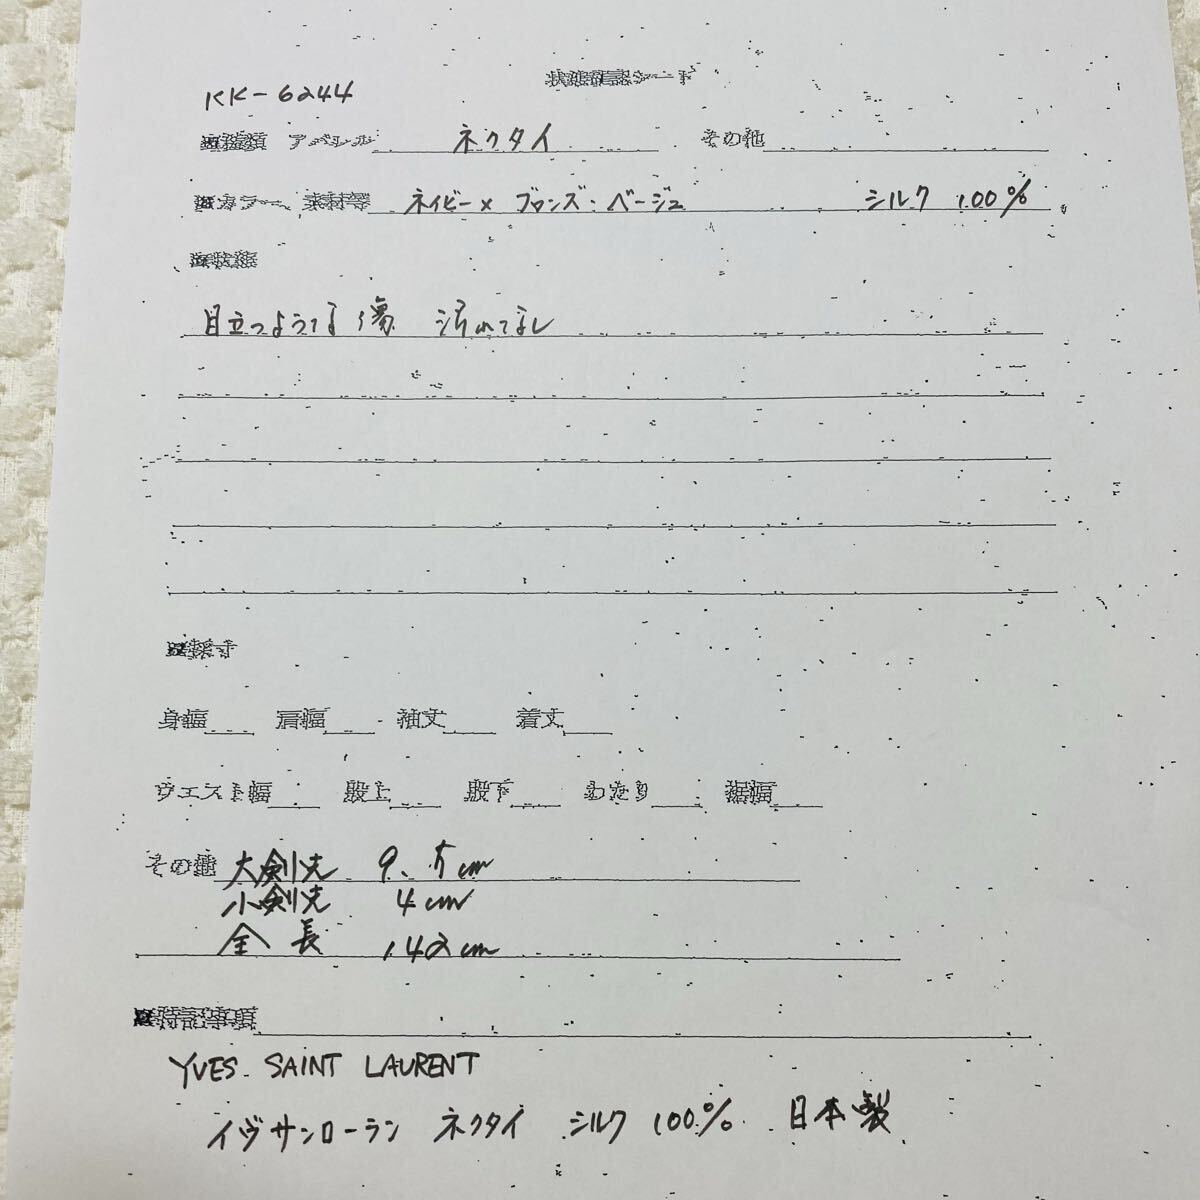 状態確認シート
KK-6244
■種類 アパレル ネクタイ その他
■カラー、素材等 ネイビー×ブロンズ・ベージュ シルク 100%
■状態
目立つような傷 汚れてなし
■採寸
身幅 肩幅 袖丈 着丈
ウエスト幅 股上 股下 わたり 裾幅
その他 大剣先 9.5cm
小剣先 4cm
全長 142cm
■特記事項
YVES SAINT LAURENT
イヴサンローラン ネクタイ シルク 100% 日本製